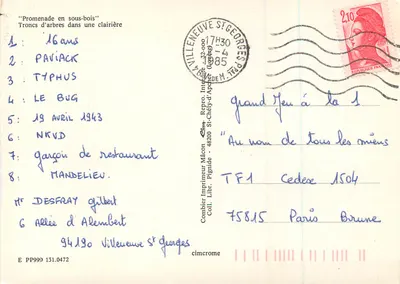 "Promenade en sous-bois"
Troncs d'arbres dans une clairière
1 : 16 ans
2 : PAVIACK
3 : TYPHUS
4 : LE BUG
5 : 19 AVRIL 1943
6 : NKVD
7 : garçon de restaurant
8 : MANDELIEU.
Mr DESFRAY Gilbert
6 Allée d'Alembert
94190 Villeneuve St Georges
E PP999 131.0472
Combier Imprimeur Mâcon
cimcrome
VILLENEUVE ST GEORGES PAL
17H30
-4
1985
VAL DE M.
2,10
Grand Jeu à la 1
"Au nom de tous les miens
TF1 Cedex 1504
75815 Paris Brune